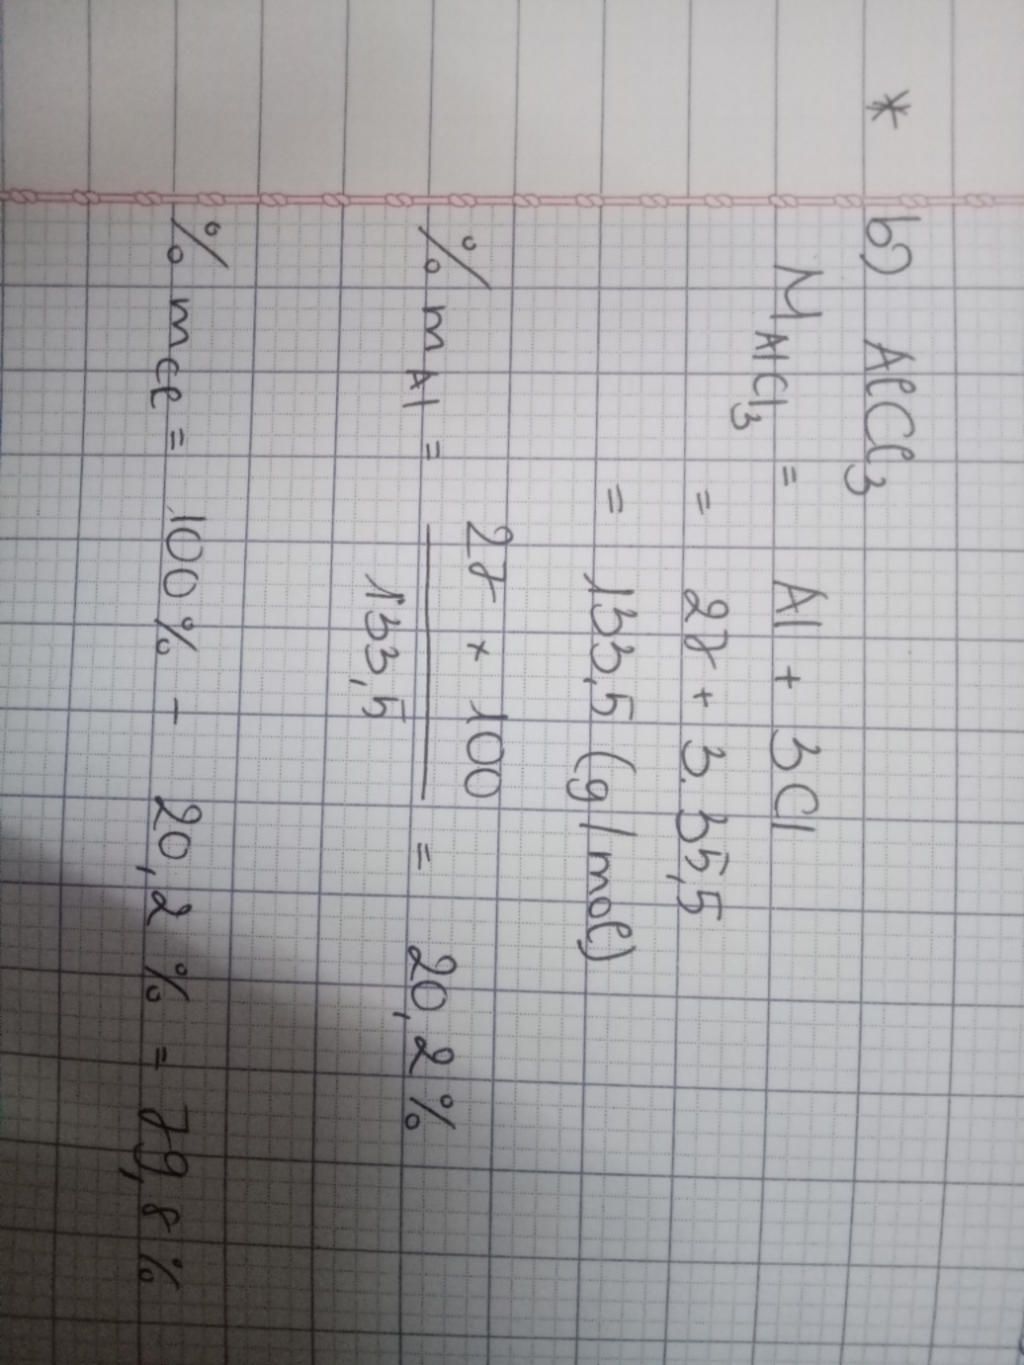 * b) AlCl3
MAlCl3 = Al + 3Cl
= 27 + 3.35,5
= 133,5 (g/mol)
% mAl = 27 × 100 / 133,5 = 20,2%
% mCl = 100% - 20,2 % = 79,8%